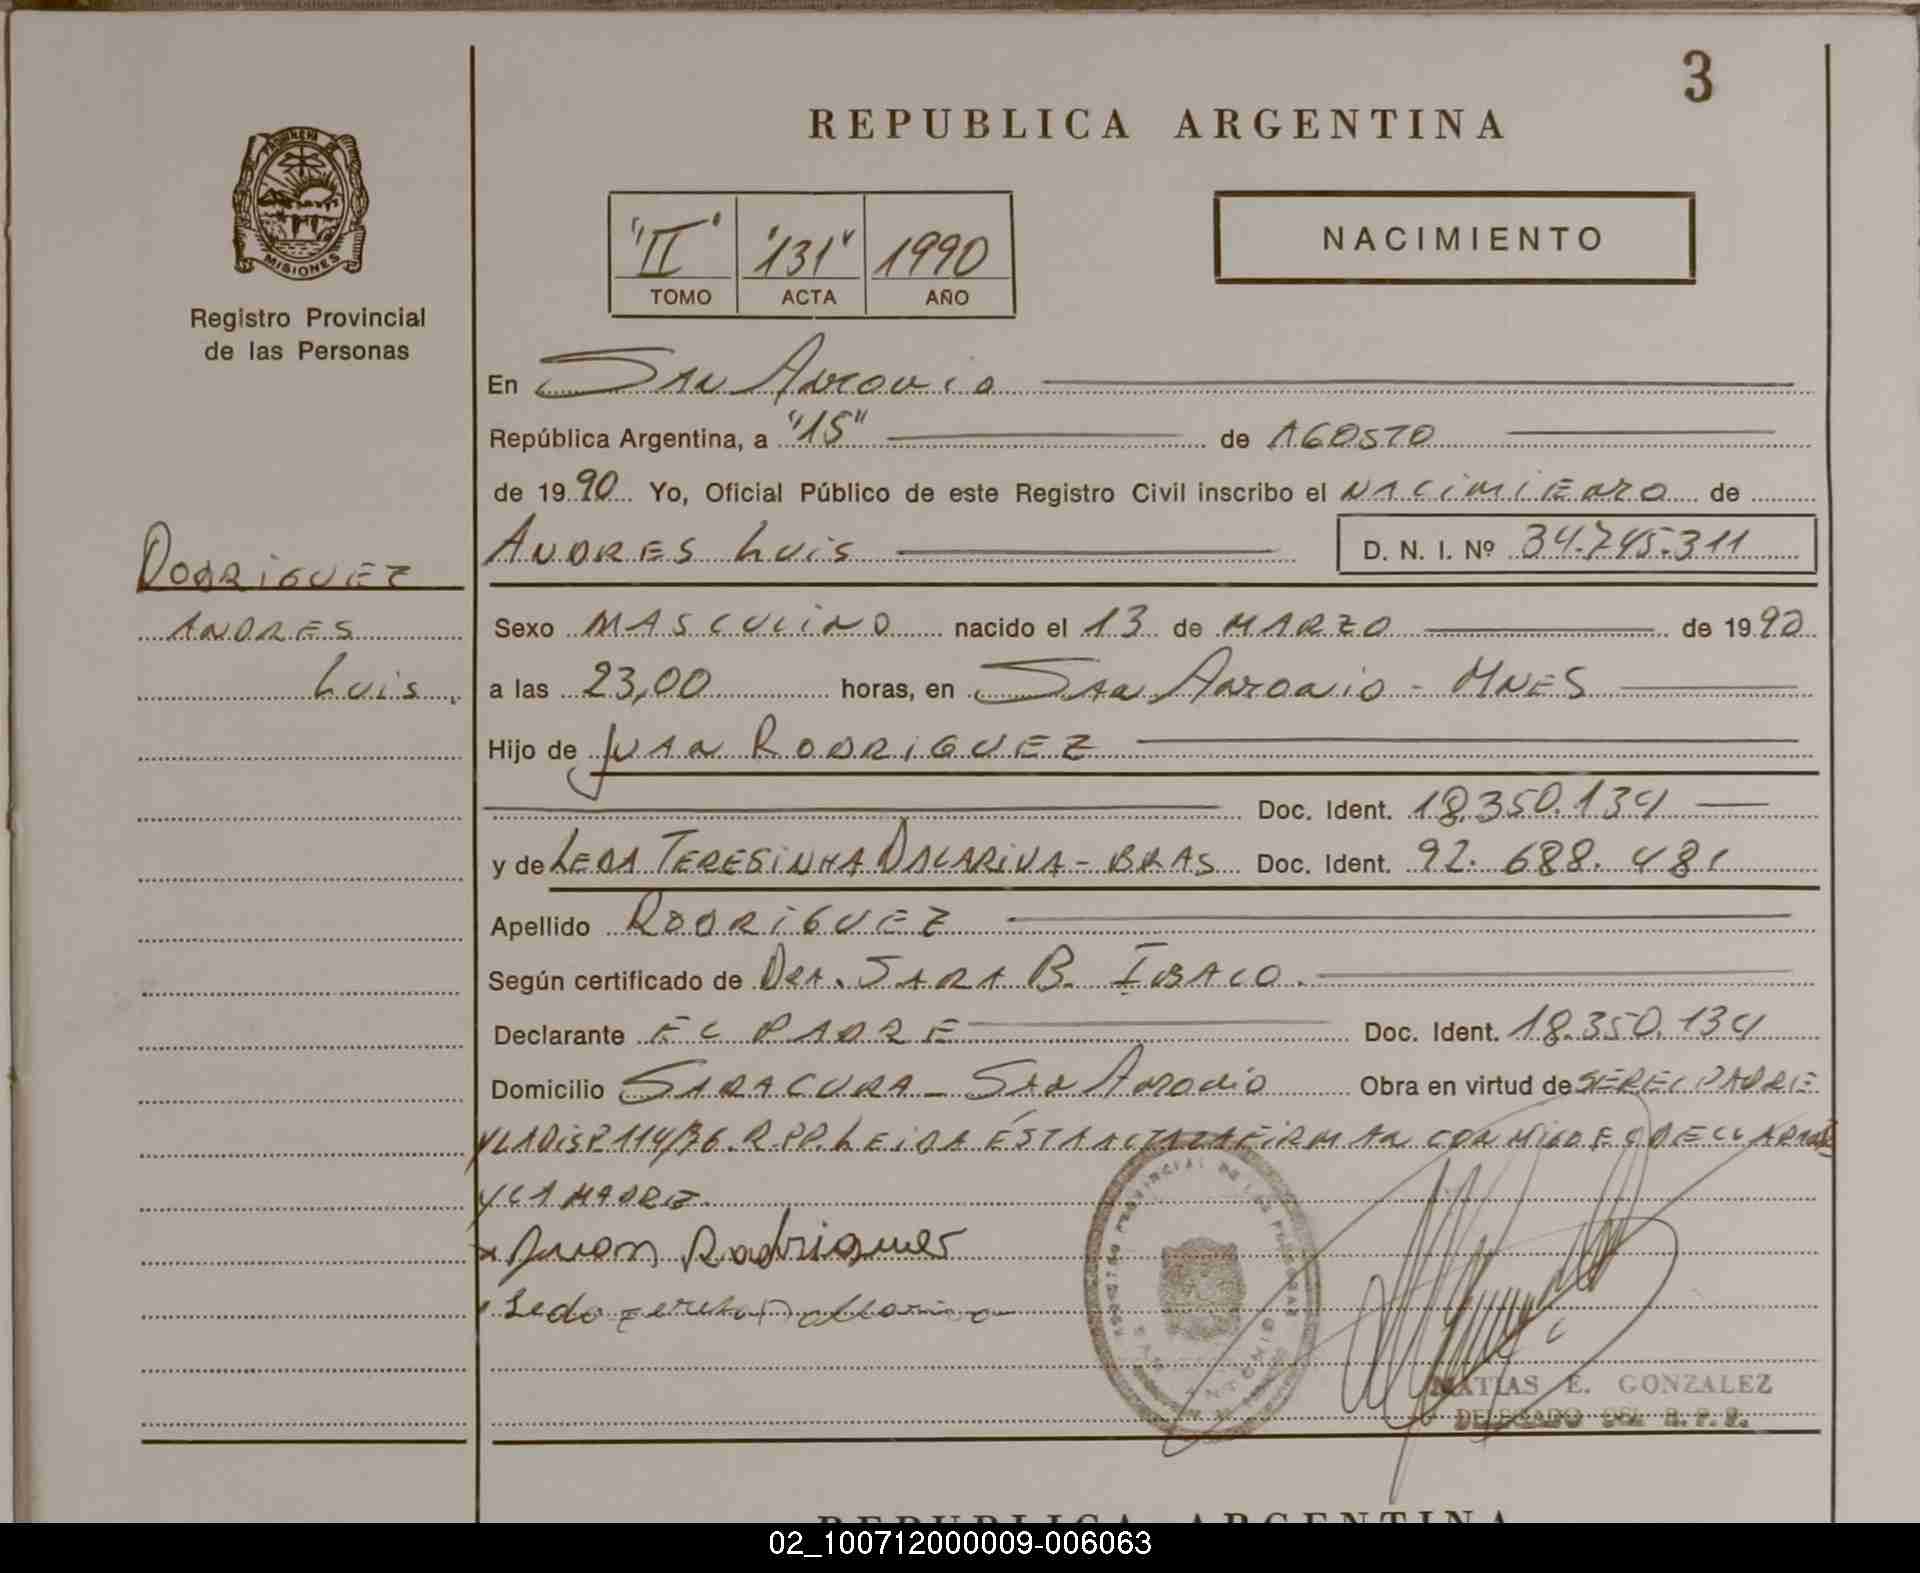 3
REPUBLICA ARGENTINA
PROVINCIA DE
MISIONES
Registro Provincial
de las Personas
"II" "131" 1990
TOMO ACTA AÑO
NACIMIENTO
En San Antonio
República Argentina, a "15" de AGOSTO
de 1990 Yo, Oficial Público de este Registro Civil inscribo el NACIMIENTO de
ANDRES LUIS D. N. I. Nº 34.745.311
RODRIGUEZ
ANDRES
LUIS.
Sexo MASCULINO nacido el 13 de MARZO de 1990
a las 23,00 horas, en San Antonio - MNES
Hijo de JUAN RODRIGUEZ
Doc. Ident. 18.350.134
y de LEDA TERESINHA DALARIVA - BRAS Doc. Ident. 92.688.481
Apellido RODRIGUEZ
Según certificado de DRA. SARA B. 
Declarante EL PADRE Doc. Ident. 18.350.134
Domicilio SARACURA - San Antonio Obra en virtud de SER EL PADRE
Y LA DISP. 114/86. R.P.P. LEIDA ÉSTA ACTA LA FIRMAN CONMIGO EL DECLARANTE
Y LA MADRE.
x Juan Rodriguer
Leda
REGISTRO PROVINCIAL DE LAS PERSONAS
SAN ANTONIO
MATIAS E. GONZALEZ
DELEGADO DEL R. P. P.
REPUBLICA ARGENTINA
02_100712000009-006063